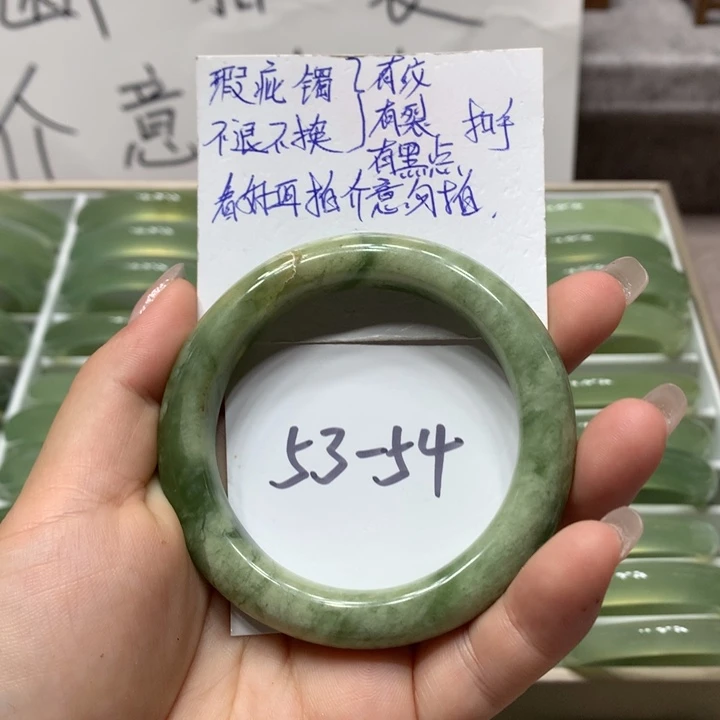 介意
瑕疵镯 有纹
不退不换 有裂 扣手
有黑点
看好再拍介意勿拍.
53-54